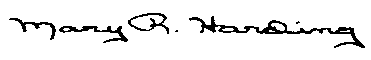 Mary R. Harding